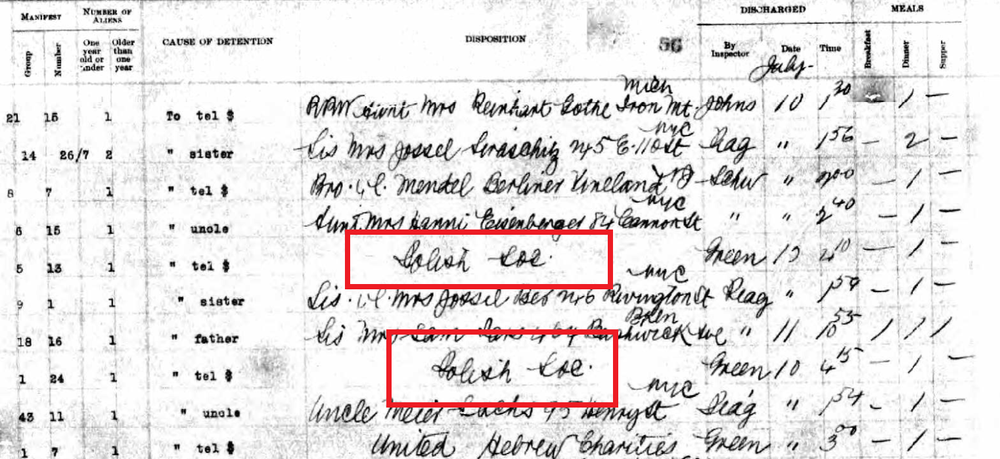 MANIFEST NUMBER OF ALIENS DISCHARGED MEALS
Group Number One year old or under Older than one year CAUSE OF DETENTION DISPOSITION 56 By Inspector Date Time Breakfast Dinner Supper
July-
Mich
21 15 1 To tel $ Aunt Mrs Reinhart Gothe Iron Mt. Johns 10 1 30 1 —
NYC
14 26/7 2 " sister Sis Mrs Jossel 245 E. 110 St Reag " 1 56 — 2 —
8 7 1 " tel $ Bro. i. l. Mendel Berliner Vineland NJ Schw " — 1 —
NYC
6 15 1 " uncle Aunt Mrs Hanni Eisenberger 84 Cannon St " " 2 40 — 1 —
5 13 1 " tel $ Polish Soc. Green 2 10 — 1 —
NYC
9 1 1 " sister Sis. i. l. Mrs Jossel 246 Rivington St Reag " 1 59 — 1 —
Bklen
18 16 1 " father Sis Mrs Sam Bushwick Ave " 11 10 55 1 1 1
1 24 1 " tel $ Polish Soc. Green 10 4 15 1 —
NYC
43 11 1 " uncle Uncle Meier Sachs 95 Henry St Reag " 1 54 — 1 —
1 7 1 " tel $ United Hebrew Charities Green " 3 00 — 1 —